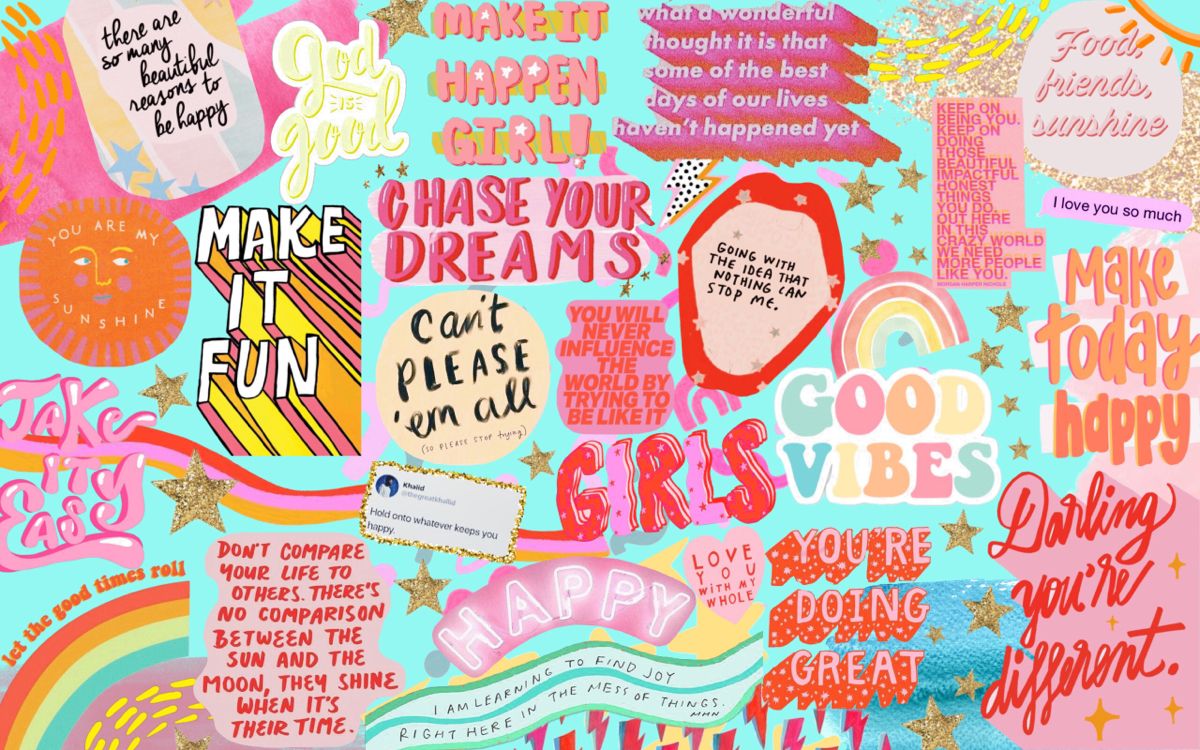 there are
so many
beautiful
reasons to
be happy
God
IS
good
MAKE IT
HAPPEN
GIRL!
what a wonderful
thought it is that
some of the best
days of our lives
haven't happened yet
Food,
friends,
sunshine
KEEP ON
BEING YOU.
KEEP ON
DOING
THOSE
BEAUTIFUL
IMPACTFUL
HONEST
THINGS
YOU DO.
OUT HERE
IN THIS
CRAZY WORLD
WE NEED
MORE PEOPLE
LIKE YOU.
MORGAN HARPER NICHOLS
I love you so much
YOU ARE MY
SUNSHINE
MAKE
IT
FUN
CHASE YOUR
DREAMS
GOING WITH
THE IDEA THAT
NOTHING CAN
STOP ME.
Can't
PLEASE
'em all
(SO PLEASE STOP trying)
YOU WILL
NEVER
INFLUENCE
THE
WORLD BY
TRYING TO
BE LIKE IT
Make
today
happy
GOOD
VIBES
TAKE
IT
EASY
GIRLS
Khalid
@thegreatkhalid
Hold onto whatever keeps you
happy.
let the good times roll
DON'T COMPARE
YOUR LIFE TO
OTHERS. THERE'S
NO COMPARISON
BETWEEN THE
SUN AND THE
MOON, THEY SHINE
WHEN IT'S
THEIR TIME.
HAPPY
LOVE
YOU
WITH MY
WHOLE
I AM LEARNING TO FIND JOY
RIGHT HERE IN THE MESS OF THINGS.
MHN
YOU'RE
DOING
GREAT
Darling
you're
different.